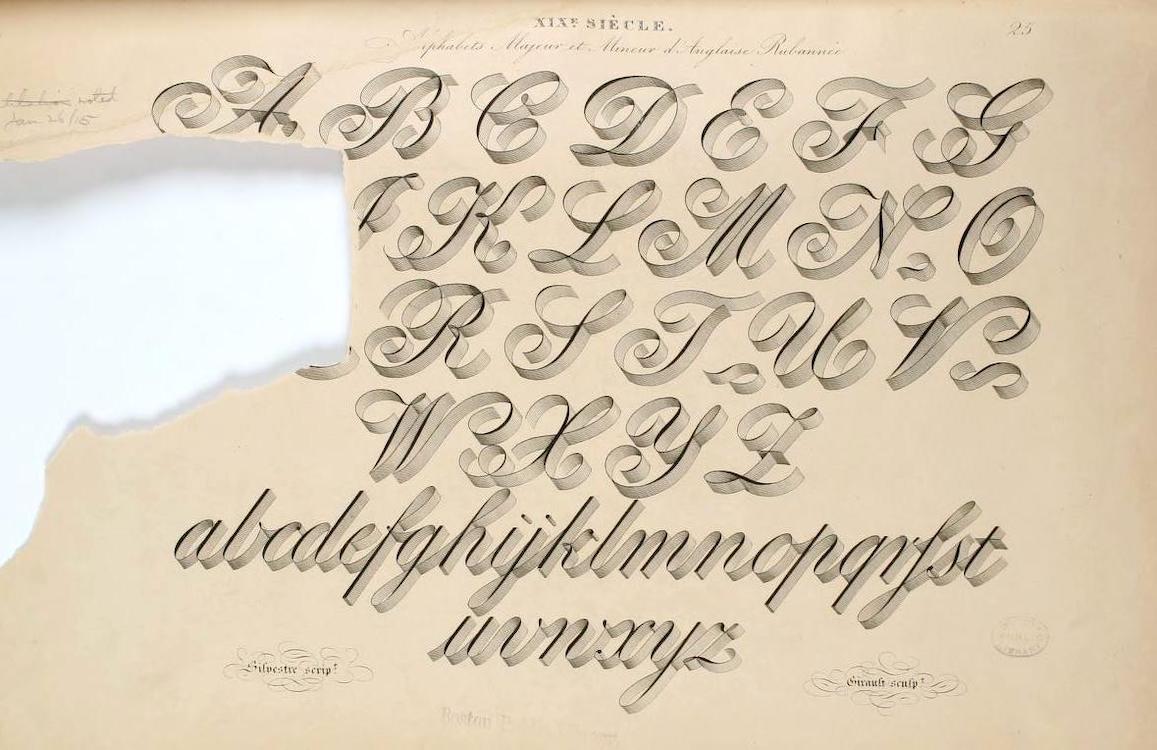 XIXᴱ SIÈCLE.
25
Alphabets Majeur et Mineur d'Anglaise Rubannée
noted
Jan 26/15
A B C D E F G
K L M N O
R S T U V
W X Y Z
abcdefghijklmnopqrſst
uvwxyz
Silvestre scripᵗ
Girault sculpᵗ
PUBLIC
LIBRARY
Boston